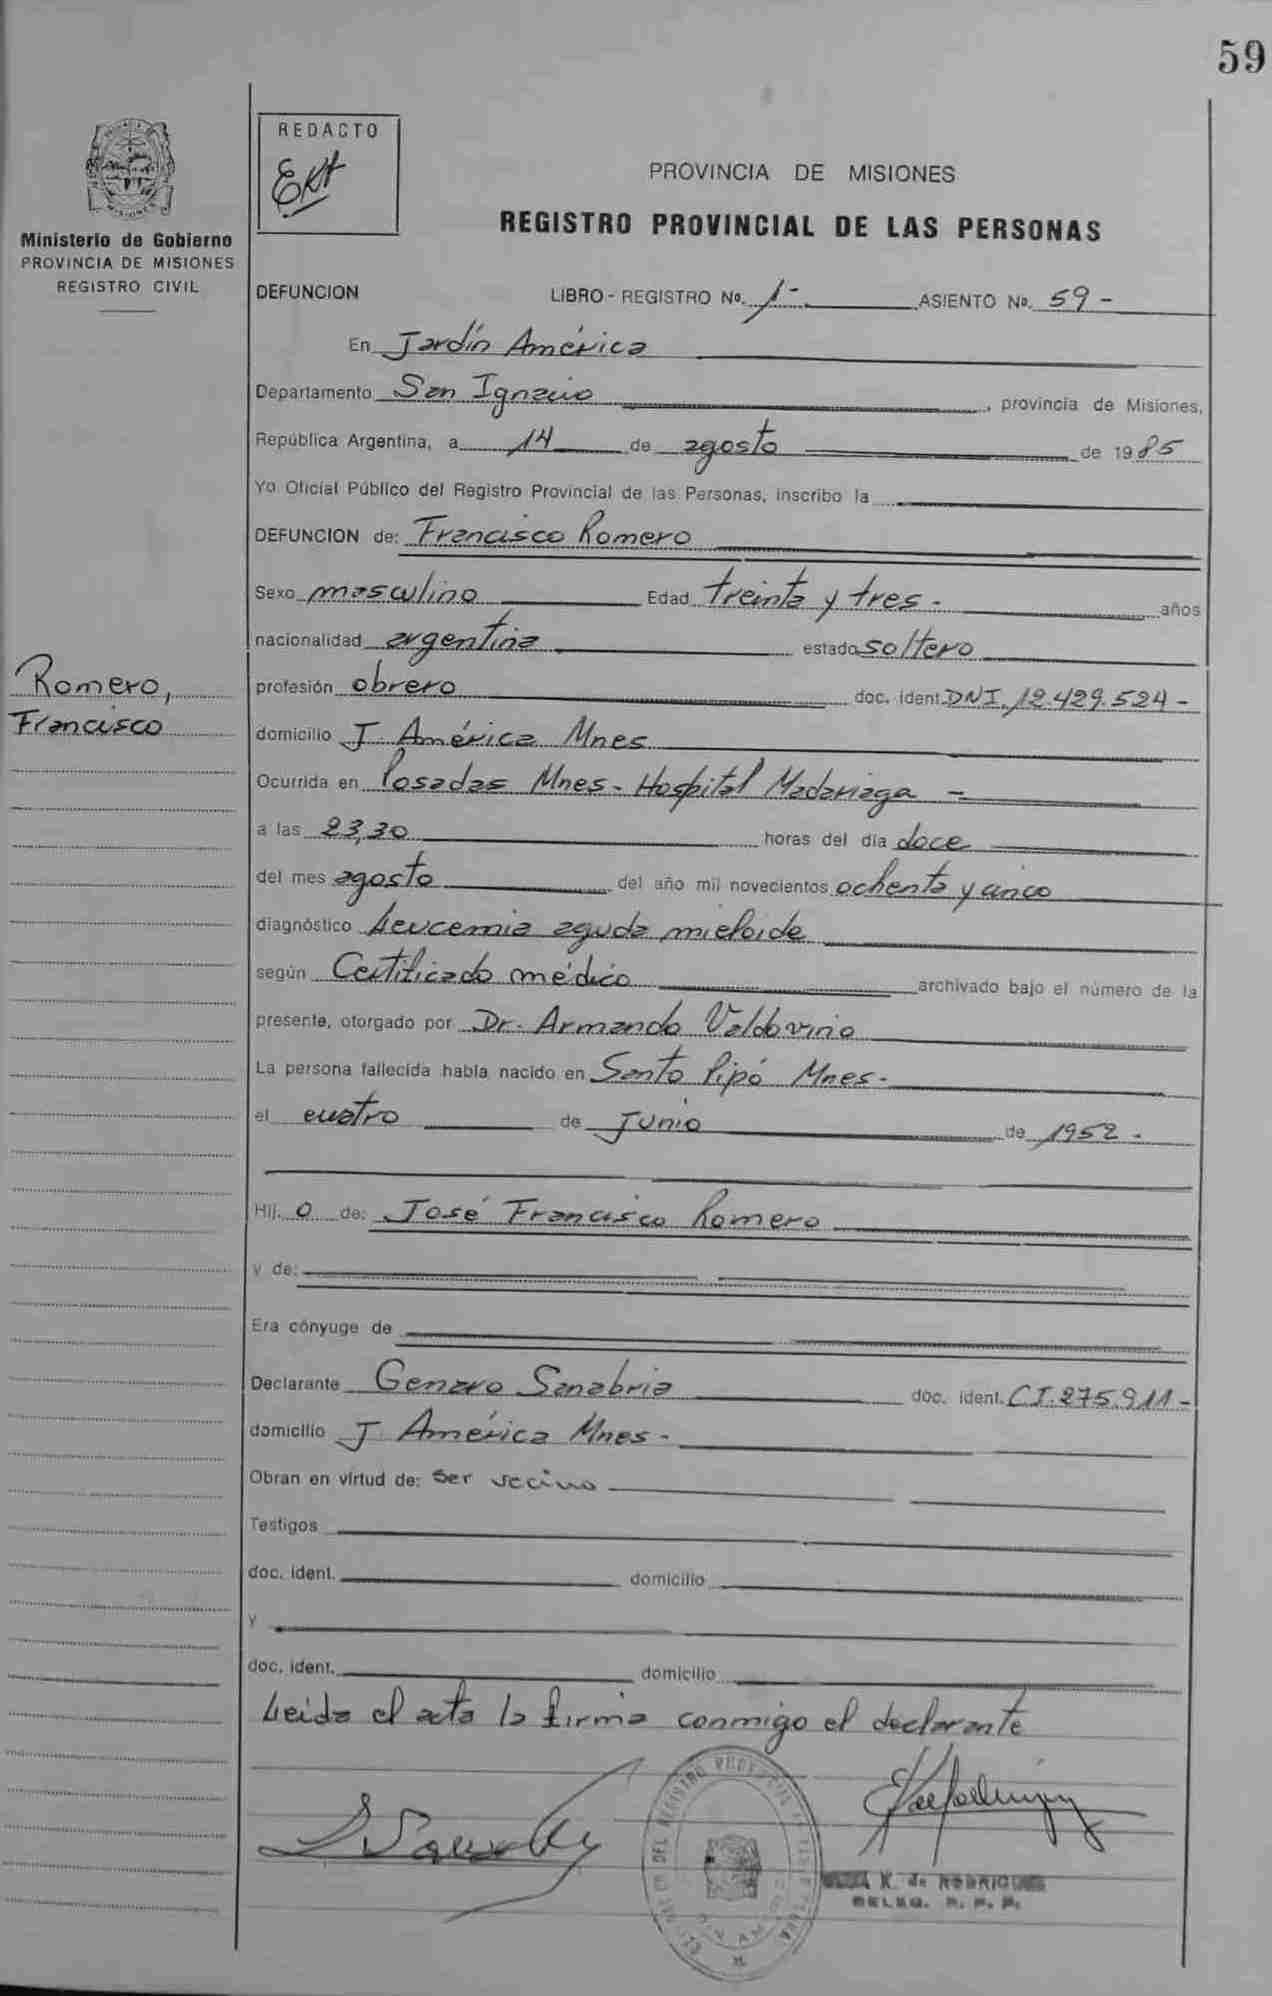 59
REDACTO
Ministerio de Gobierno
PROVINCIA DE MISIONES
REGISTRO CIVIL
PROVINCIA DE MISIONES
REGISTRO PROVINCIAL DE LAS PERSONAS
DEFUNCION LIBRO - REGISTRO Nº. 1- ASIENTO Nº. 59 -
En Jardín América
Departamento San Ignacio, provincia de Misiones,
República Argentina, a 14 de agosto de 1985
Yo Oficial Público del Registro Provincial de las Personas, inscribo la
DEFUNCION de: Francisco Romero
Sexo masculino Edad treinta y tres - años
nacionalidad argentina estado soltero
Romero,
Francisco
profesión obrero doc. ident. DNI. 12.429.524 -
domicilio J. América Mnes
Ocurrida en Posadas Mnes - Hospital Madariaga -
a las 23,30 horas del día doce
del mes agosto del año mil novecientos ochenta y cinco
diagnóstico Leucemia aguda mieloide
según Certificado médico archivado bajo el número de la
presente, otorgado por Dr. Armando Valdovino
La persona fallecida había nacido en Santo Pipó Mnes -
el cuatro de Junio de 1952 -
Hij. o de: José Francisco Romero
y de:
Era cónyuge de
Declarante Genaro Sanabria doc. ident. CI. 275.911 -
domicilio J. América Mnes -
Obran en virtud de: Ser vecino
Testigos
doc. ident. domicilio
y
doc. ident. domicilio
Leida el acta la firma conmigo el declarante
K. de RODRIGUEZ
DELEG. R. P. P.